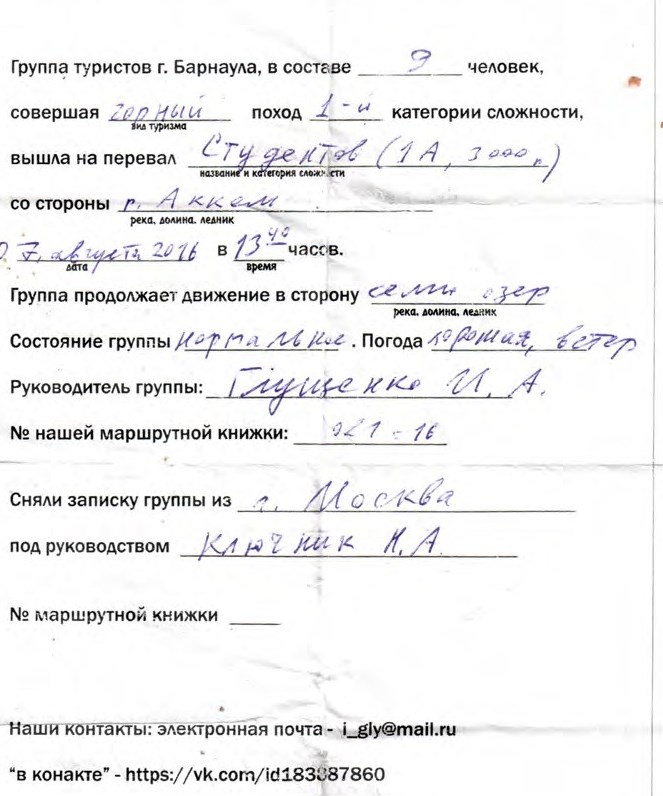 Группа туристов г. Барнаула, в составе 9 человек,
совершая горный поход 1-й категории сложности,
вид туризма
вышла на перевал Студентов (1А, 3000,)
название и категория сложности
со стороны р. Аккем
река, долина, ледник
7 августа 2016 в 13 40 часов.
дата время
Группа продолжает движение в сторону семи озер
река, долина, ледник
Состояние группы нормальное. Погода хорошая, ветер
Руководитель группы: Глущенко И. А.
№ нашей маршрутной книжки: 021-16
Сняли записку группы из г. Москва
под руководством Ключник Н.А
№ маршрутной книжки
Наши контакты: электронная почта - i_gly@mail.ru
"в конакте" - https://vk.com/id183887860